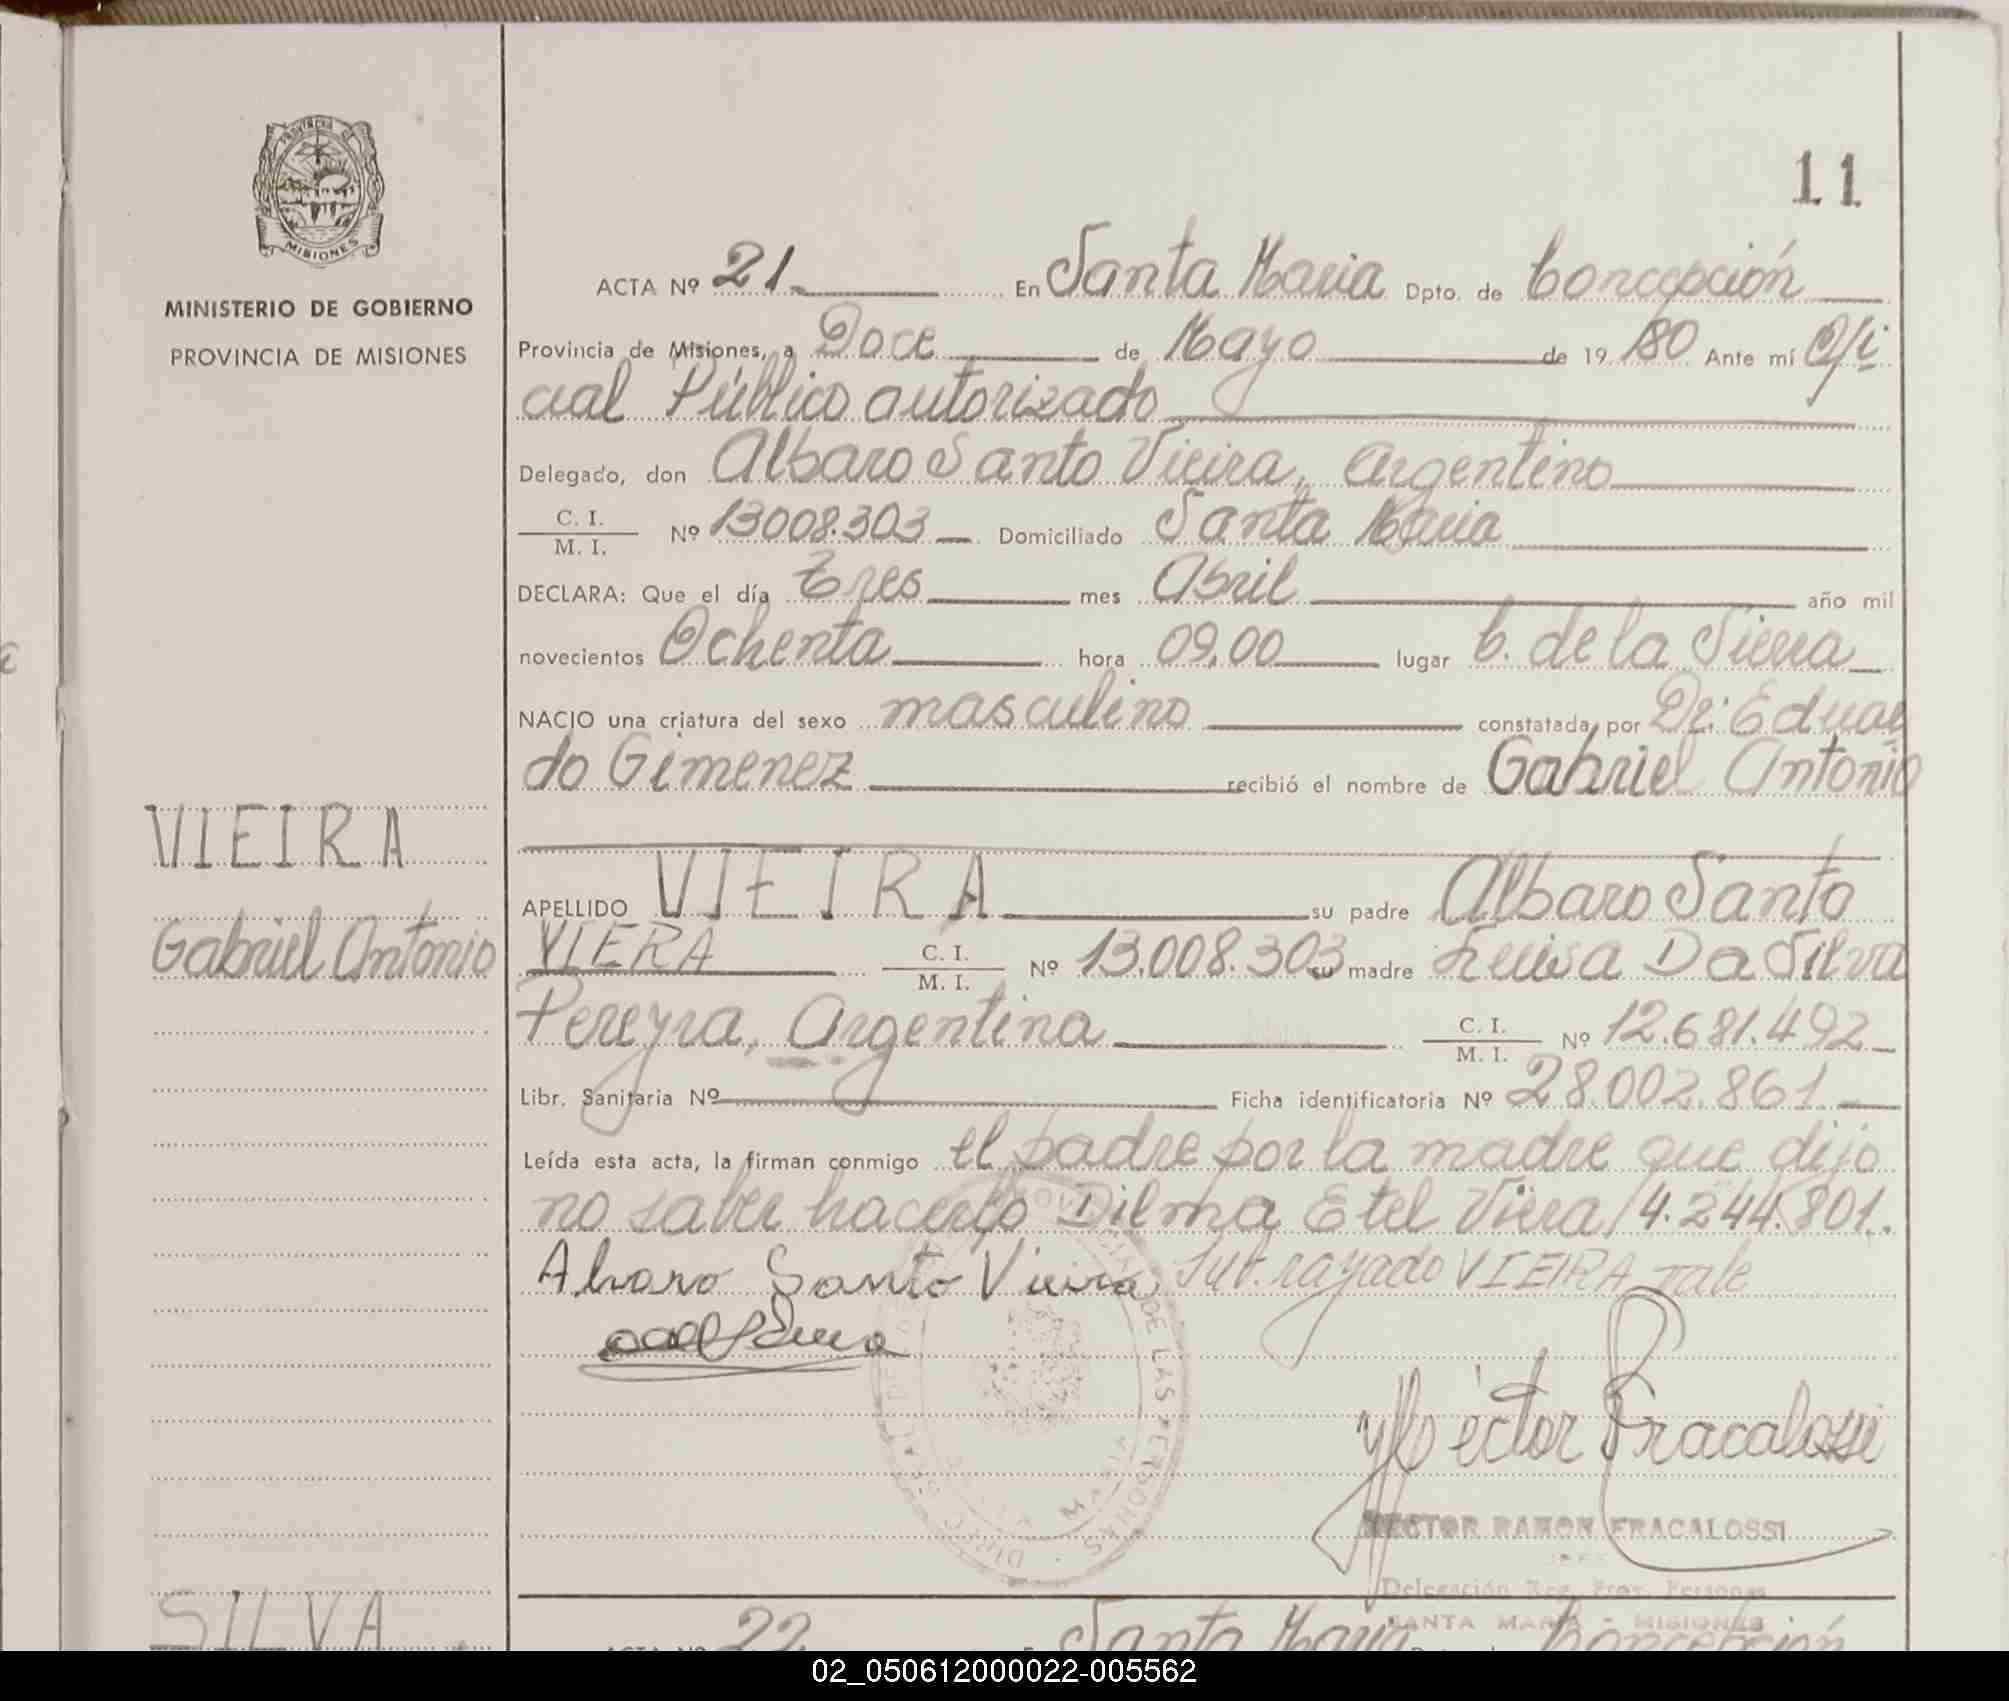 11
MINISTERIO DE GOBIERNO
PROVINCIA DE MISIONES
MISIONES
ACTA Nº 21 En Santa Maria Dpto. de Concepción
Provincia de Misiones, a Doce de Mayo de 19 80 Ante mí Ofi
cial Público autorizado
Delegado, don Albaro Santo Vieira, Argentino
C. I. / M. I. Nº 13008.303 Domiciliado Santa Maria
DECLARA: Que el día Tres mes Abril año mil
novecientos Ochenta hora 09,00 lugar C. de la Sierra
NACIO una criatura del sexo masculino constatada por Dr: Eduar
do Gimenez recibió el nombre de Gabriel Antonio
VIEIRA
Gabriel Antonio
APELLIDO VIEIRA su padre Albaro Santo
VIERA C. I. / M. I. Nº 13.008.303 su madre Luisa Da Silva
Pereyra, Argentina C. I. / M. I. Nº 12.681.492
Libr. Sanitaria Nº Ficha identificatoria Nº 28.002.861
Leída esta acta, la firman conmigo el padre por la madre que dijo
no saber hacerlo Dilma Etel Viera 4.244.801.
Alvaro Santo Vieira Sub.rayado VIEIRA vale
Héctor Fracalossi
HECTOR RAMON FRACALOSSI
JEFE
Delegación Reg. Prov. Personas
SANTA MARIA - MISIONES
DE LAS PERSONAS
SILVA
ACTA Nº 22 En Santa Maria Dpto. de Concepción
02_050612000022-005562